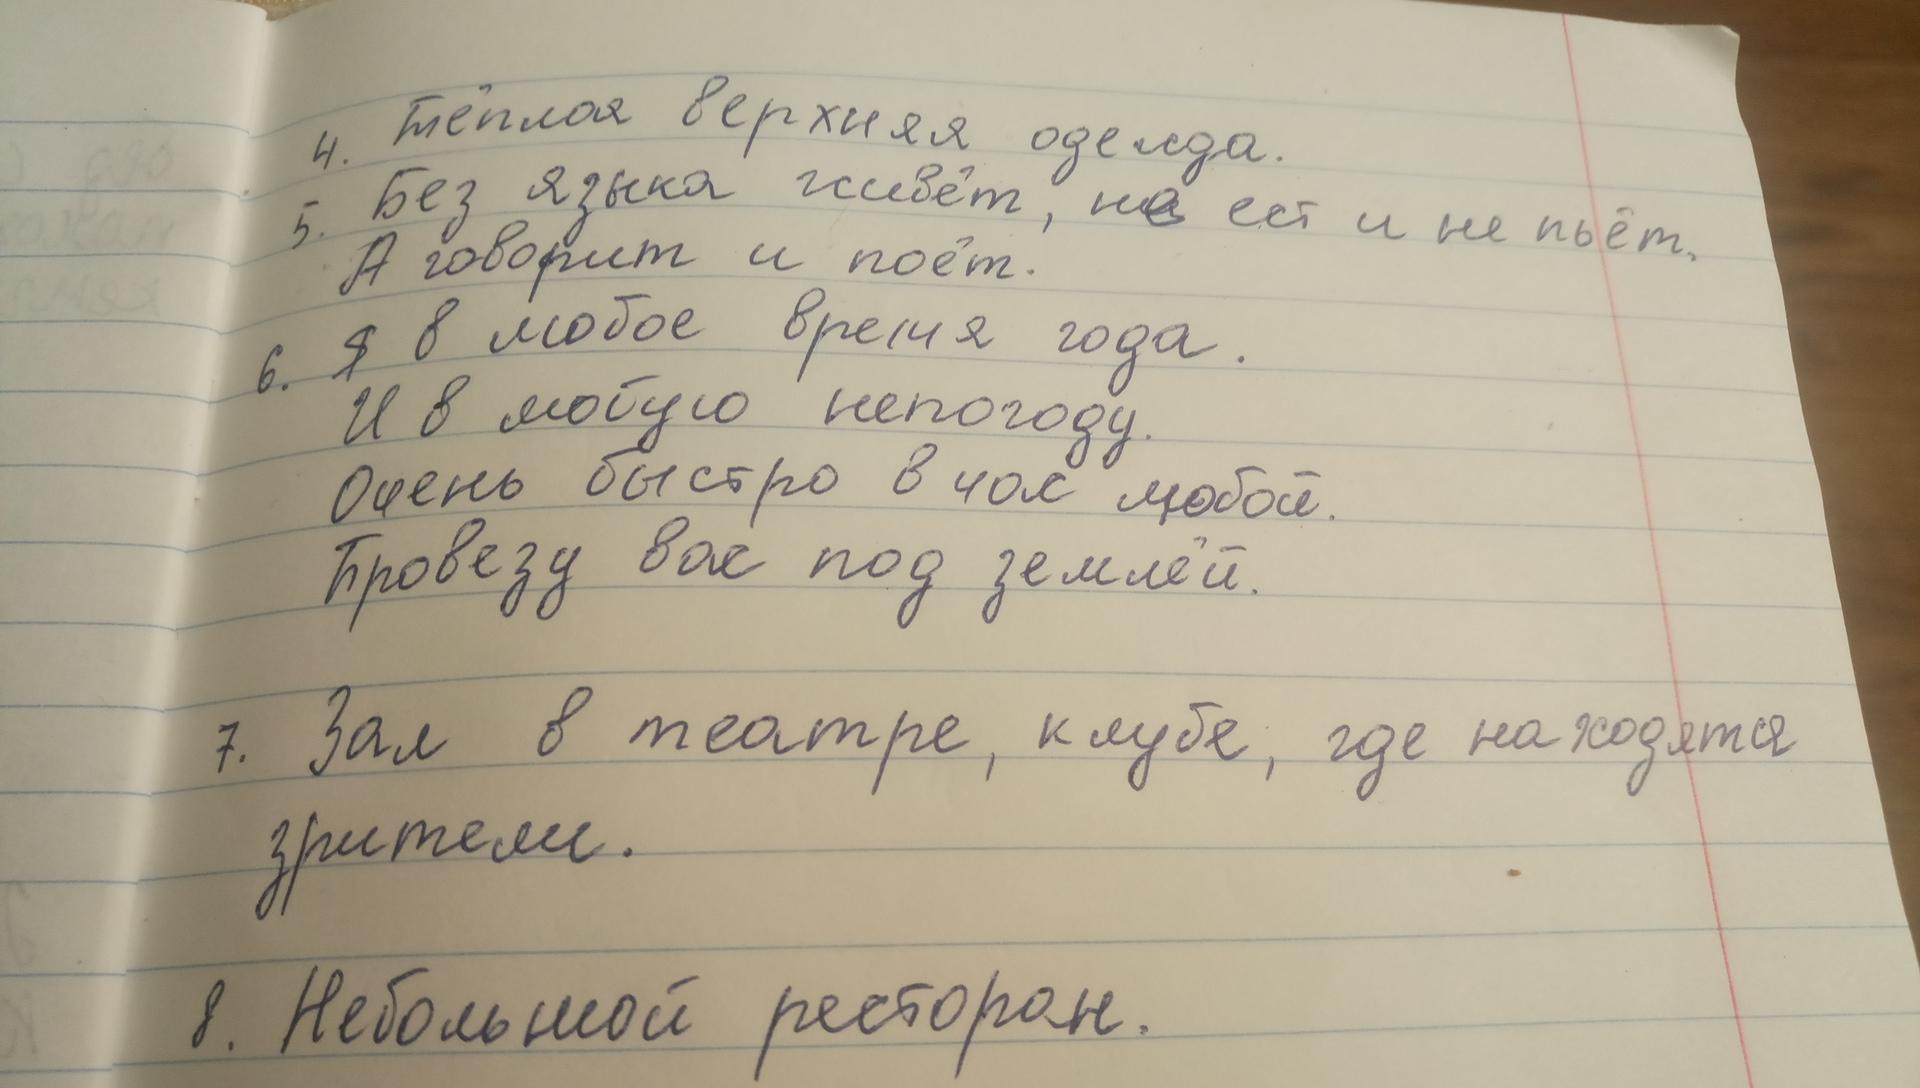 4. Тёплая верхняя одежда.
5. Без языка живёт, не ест и не пьёт.
А говорит и поёт.
6. Я в любое время года.
И в любую непогоду.
Очень быстро в час любой.
Провезу вас под землёй.
7. Зал в театре, клубе, где находятся
зрители.
8. Небольшой ресторан.